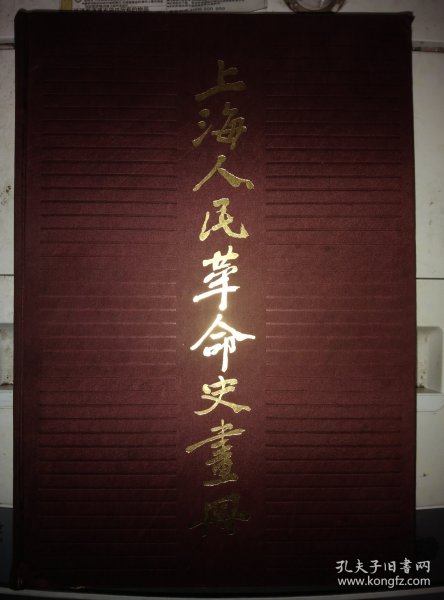 上海人民革命史畫冊
孔夫子旧书网
www.kongfz.com